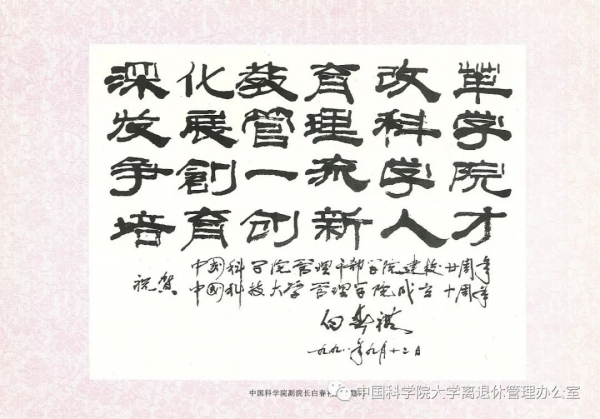 深化教育改革
发展管理科学
争創一流学院
培育创新人才
祝贺
中国科学院管理干部学院建校廿周年
中国科技大学管理学院成立十周年
白春礼
一九九八年九月十二日
中国科学院副院长白春
中国科学院大学离退休管理办公室